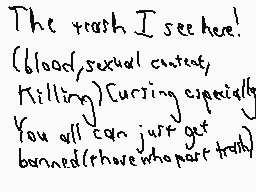 The trash I see here!
(blood, sexual content,
Killing) Cursing especially
You all can just get
banned (those who post trash)